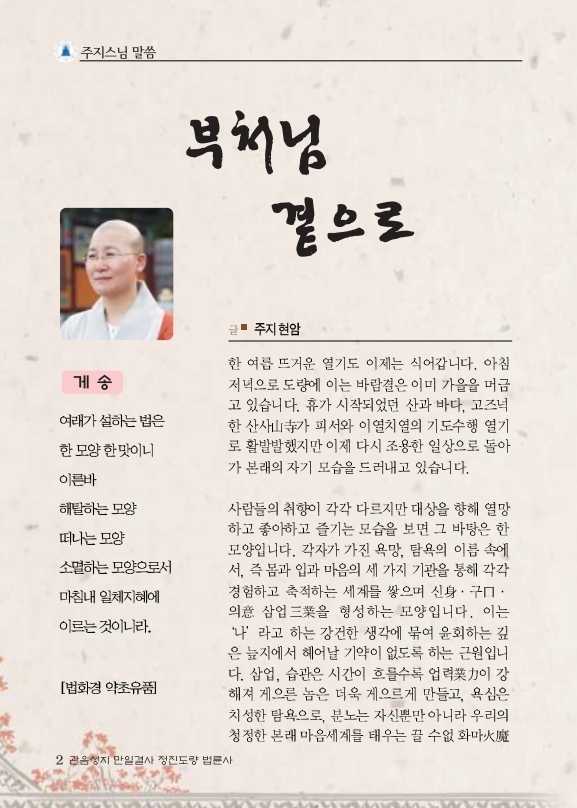 주지스님 말씀
부처님
곁으로
글 주지 현암
게 송
여래가 설하는 법은
한 모양 한 맛이니
이른바
해탈하는 모양
떠나는 모양
소멸하는 모양으로서
마침내 일체지혜에
이르는 것이니라.
[법화경 약초유품]
한 여름 뜨거운 열기도 이제는 식어갑니다. 아침
저녁으로 도량에 이는 바람결은 이미 가을을 머금
고 있습니다. 휴가 시작되었던 산과 바다, 고즈넉
한 산사山寺가 피서와 이열치열의 기도수행 열기
로 활발발했지만 이제 다시 조용한 일상으로 돌아
가 본래의 자기 모습을 드러내고 있습니다.
사람들의 취향이 각각 다르지만 대상을 향해 열망
하고 좋아하고 즐기는 모습을 보면 그 바탕은 한
모양입니다. 각자가 가진 욕망, 탐욕의 이름 속에
서, 즉 몸과 입과 마음의 세 가지 기관을 통해 각각
경험하고 축적하는 세계를 쌓으며 신身·구口·
의意 삼업三業을 형성하는 모양입니다. 이는
‘나’ 라고 하는 강건한 생각에 묶여 윤회하는 깊
은 늪지에서 헤어날 기약이 없도록 하는 근원입니
다. 삼업, 습관은 시간이 흐를수록 업력業力이 강
해져 게으른 놈은 더욱 게으르게 만들고, 욕심은
치성한 탐욕으로, 분노는 자신뿐만 아니라 우리의
청정한 본래 마음세계를 태우는 끌 수없 화마火魔
2 관음성지 만일결사 정진도량 법륜사